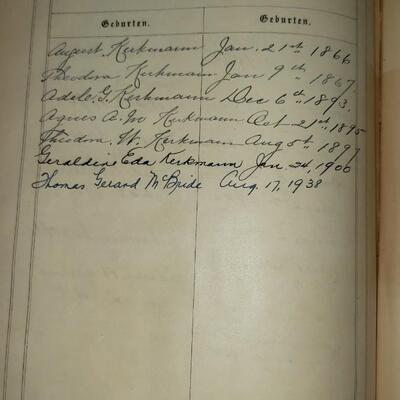 Geburten. Geburten.
August Kerkmann Jan. 21st 1866
Theodora Kerkmann Jan 9th 1867.
Adele G. Kerkmann Dec 6th 1893.
Agnes A. M Kerkmann Oct 21st 1895
Theodora W. Kerkmann Aug 5th 1897
Geraldine Eda Kerkmann Jan 24, 1900
Thomas Gerard McBride Aug. 17, 1938